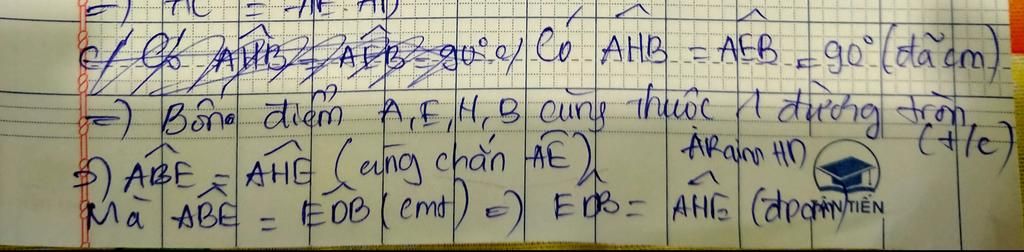 =) AC = AE. AD
c/ Có AHB = AEB = 90° c/ Có AHB = AEB = 90° (đã cm)
=) Bốn điểm A, E, H, B cùng thuộc 1 đường tròn (t/c)
=) ABE = AHE (cùng chắn AE)
Mà ABE = EDB (cmt) =) EDB = AHE (đpcm)
TIẾN